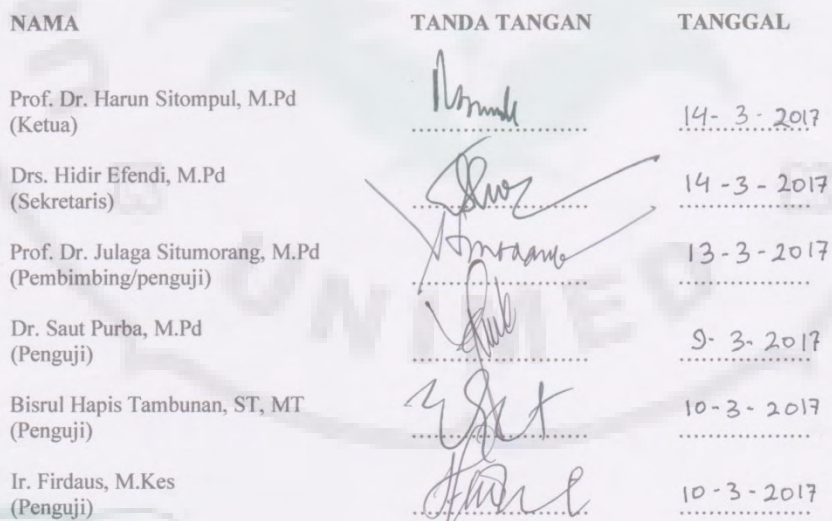 NAMA TANDA TANGAN TANGGAL
Prof. Dr. Harun Sitompul, M.Pd
(Ketua) 14-3-2017
Drs. Hidir Efendi, M.Pd
(Sekretaris) 14-3-2017
Prof. Dr. Julaga Situmorang, M.Pd
(Pembimbing/penguji) 13-3-2017
Dr. Saut Purba, M.Pd
(Penguji) 9-3-2017
Bisrul Hapis Tambunan, ST, MT
(Penguji) 10-3-2017
Ir. Firdaus, M.Kes
(Penguji) 10-3-2017
UNIMED